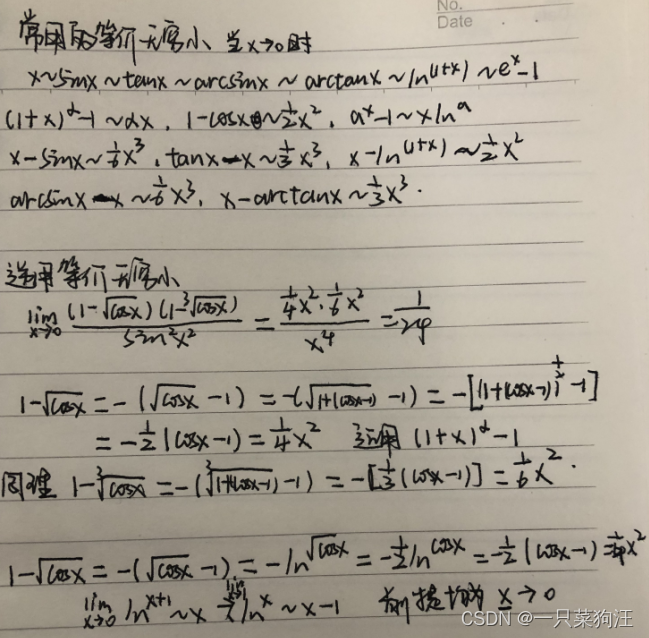 No.
Date
常用的等价无穷小 当x→0时
x~sinx~tanx~arcsinx~arctanx~ln(1+x)~e^x-1
(1+x)^α-1~αx, 1-cosx~1/2x², a^x-1~xln^a
x-sinx~1/6x³, tanx-x~1/3x³, x-ln(1+x)~1/2x²
arcsinx-x~1/6x³, x-arctanx~1/3x³.
运用等价无穷小
lim x→0 (1-√cosx)(1-³√cosx)/sin²x² = (1/4x²·1/6x²)/x⁴ = 1/24
1-√cosx = -(√cosx-1) = -(√1+(cosx-1) -1) = -[(1+(cosx-1))^1/2 -1]
= -1/2(cosx-1) = 1/4x² 运用 (1+x)^α-1
同理 1-³√cosx = -(³√1+(cosx-1) -1) = -[1/3(cosx-1)] = 1/6x².
1-√cosx = -(√cosx-1) = -ln^√cosx = -1/2ln^cosx = -1/2(cosx-1) = 1/4x²
lim x→0 ln^x+1~x → lim ln^x~x-1 前提均为 x→0
CSDN @一只菜狗汪